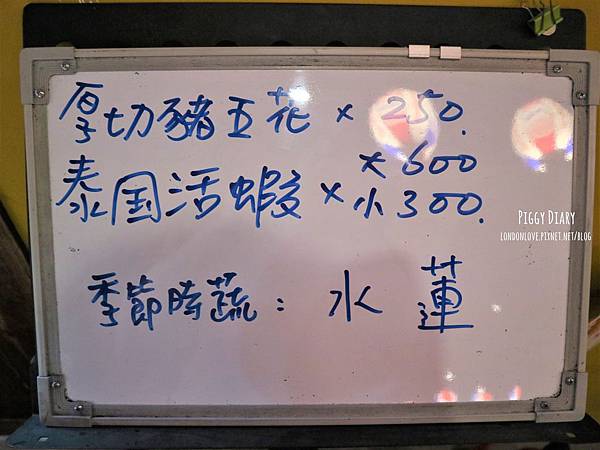 厚切豬五花 × 250.
大600
泰国活蝦 × 小300.
季節時蔬: 水蓮
PIGGY DIARY
LONDONLOVE.PIXNET.NET/BLOG